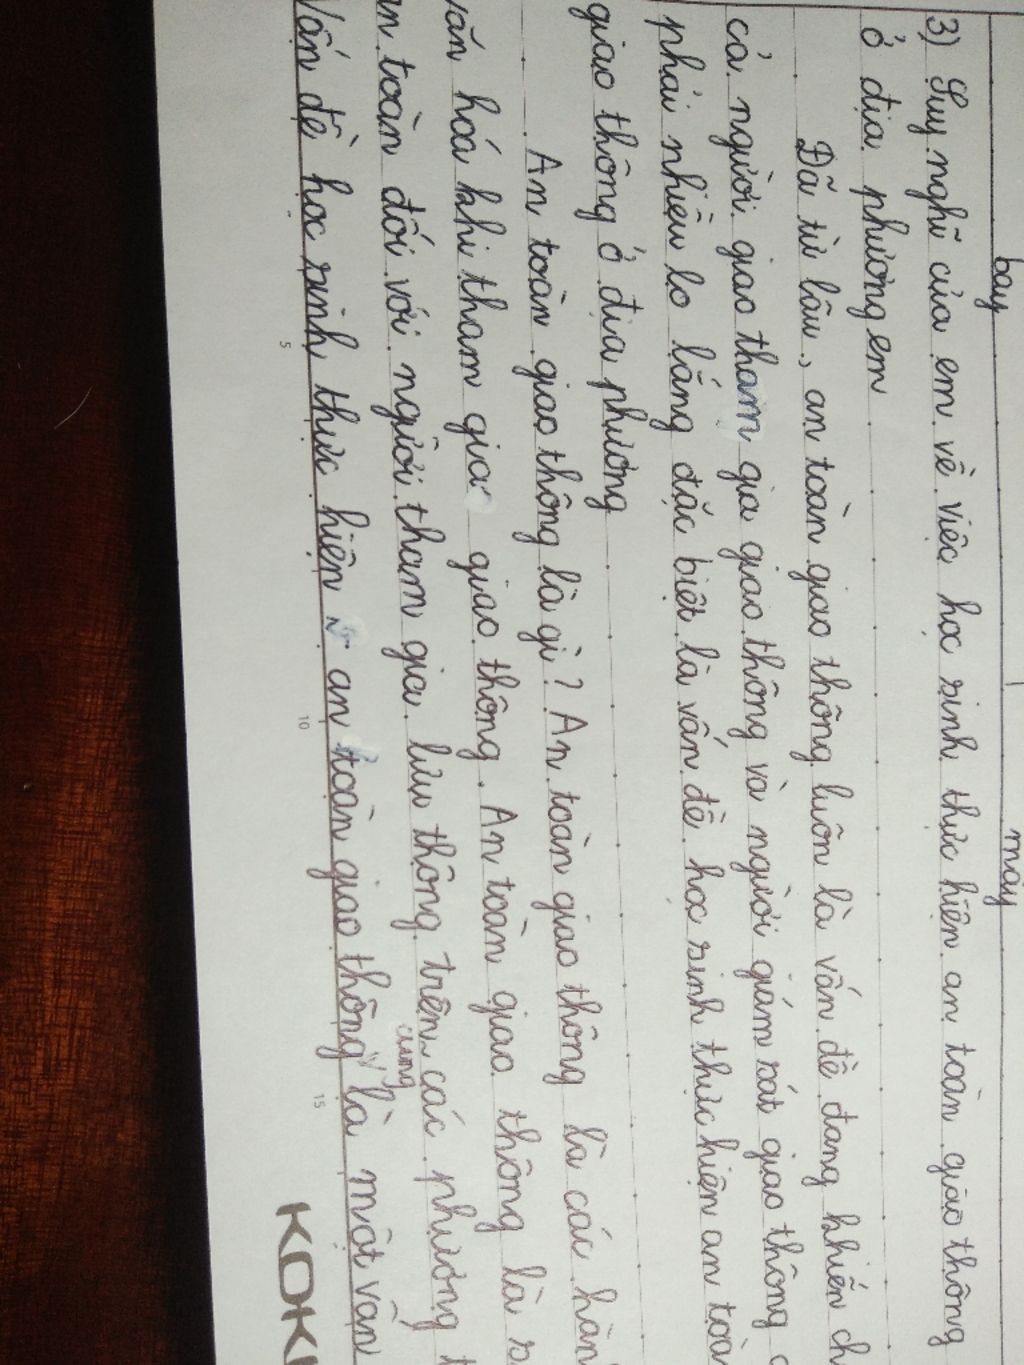 bay
máy
3) Suy nghĩ của em về việc học sinh thực hiện an toàn giao thông
ở địa phương em
Đã từ lâu, an toàn giao thông luôn là vấn đề đang khiến ch
cả người giao tham gia giao thông và người giám sát giao thông
phải nhiều lo lắng đặc biệt là vấn đề học sinh thực hiện an toàn
giao thông ở địa phương
An toàn giao thông là gì? An toàn giao thông là các hàn
văn hoá khi tham gia giao thông. An toàn giao thông là s
an toàn đối với người tham gia lưu thông trên các phương t
cung
Vấn đề học sinh thực hiện an toàn giao thông là một vấn
5
10
15
KOKU